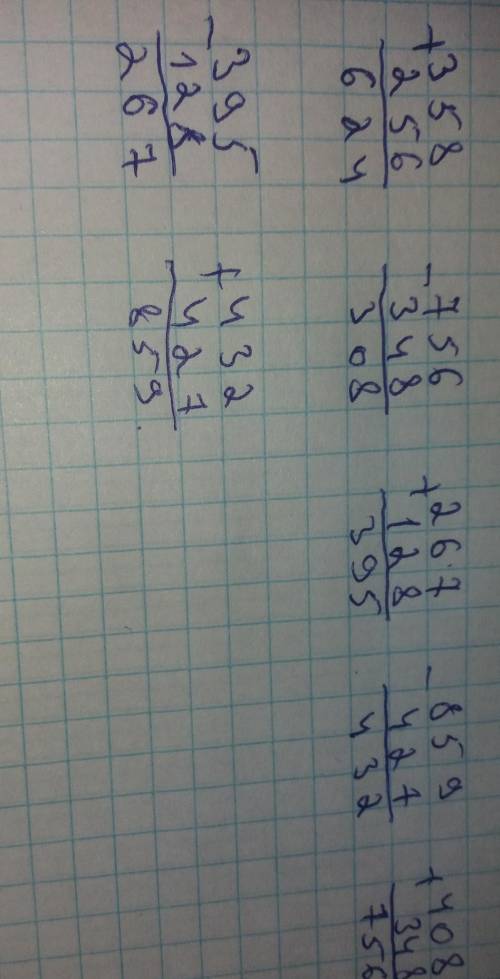 +358
256
624
-756
348
308
+267
128
395
-859
427
432
+408
348
756
-395
128
267
+432
427
859